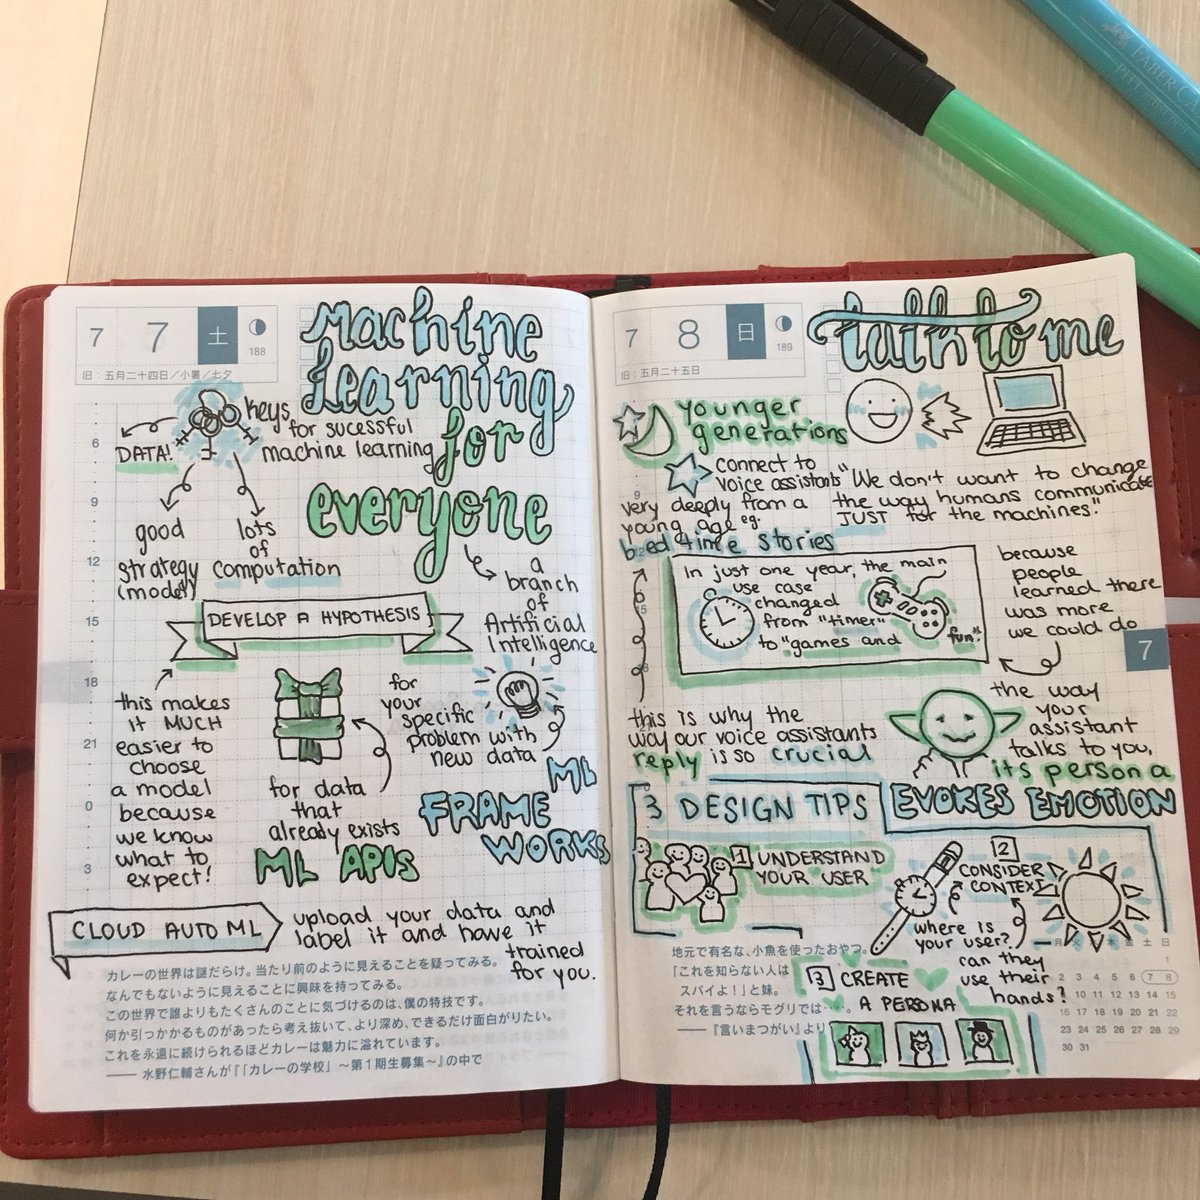 FABER CA
PITT artist pen
7 7 土
188
旧：五月二十四日／小暑／七夕
Machine
Learning
for
everyone
keys
for sucessful
machine learning
DATA!
good
strategy
(model)
lots
of
computation
a
branch
of
Artificial
Intelligence
DEVELOP A HYPOTHESIS
this makes
it MUCH
easier to
choose
a model
because
we know
what to
expect!
for
your
specific
problem with
new data
for data
that
already exists
ML APIS
ML
FRAME
WORKS
CLOUD AUTO ML
upload your data and
label it and have it
trained
for you.
6
9
12
15
18
21
0
3
カレーの世界は謎だらけ。当たり前のように見えることを疑ってみる。
なんでもないように見えることに興味を持ってみる。
この世界で誰よりもたくさんのことに気づけるのは、僕の特技です。
何か引っかかるものがあったら考え抜いて、より深め、できるだけ面白がりたい。
これを永遠に続けられるほどカレーは魅力に溢れています。
── 水野仁輔さんが『「カレーの学校」～第1期生募集～』の中で
7 8 日
189
旧：五月二十五日
talk to me
younger
generations
connect to
voice assistants
very deeply from a
young age eg.
bed time stories
"We don't want to change
the way humans communicate
JUST for the machines."
In just one year, the main
use case
changed
from "timer"
to "games and
fun".
because
people
learned there
was more
we could do
this is why the
way our voice assistants
reply is so crucial
the way
your
assistant
talks to you,
its persona
EVOKES EMOTION
3 DESIGN TIPS
1 UNDERSTAND
YOUR USER
2
CONSIDER
CONTEXT
where is
your user?
can they
use their
hands?
3 CREATE
A PERSONA
7
地元で有名な、小魚を使ったおやつ。
「これを知らない人は
スパイよ！」と妹。
それを言うならモグリでは・・・。
── 『言いまつがい』より
月 火 水 木 金 土 日
1
2 3 4 5 6 7 8
9 10 11 12 13 14 15
16 17 18 19 20 21 22
23 24 25 26 27 28 29
30 31